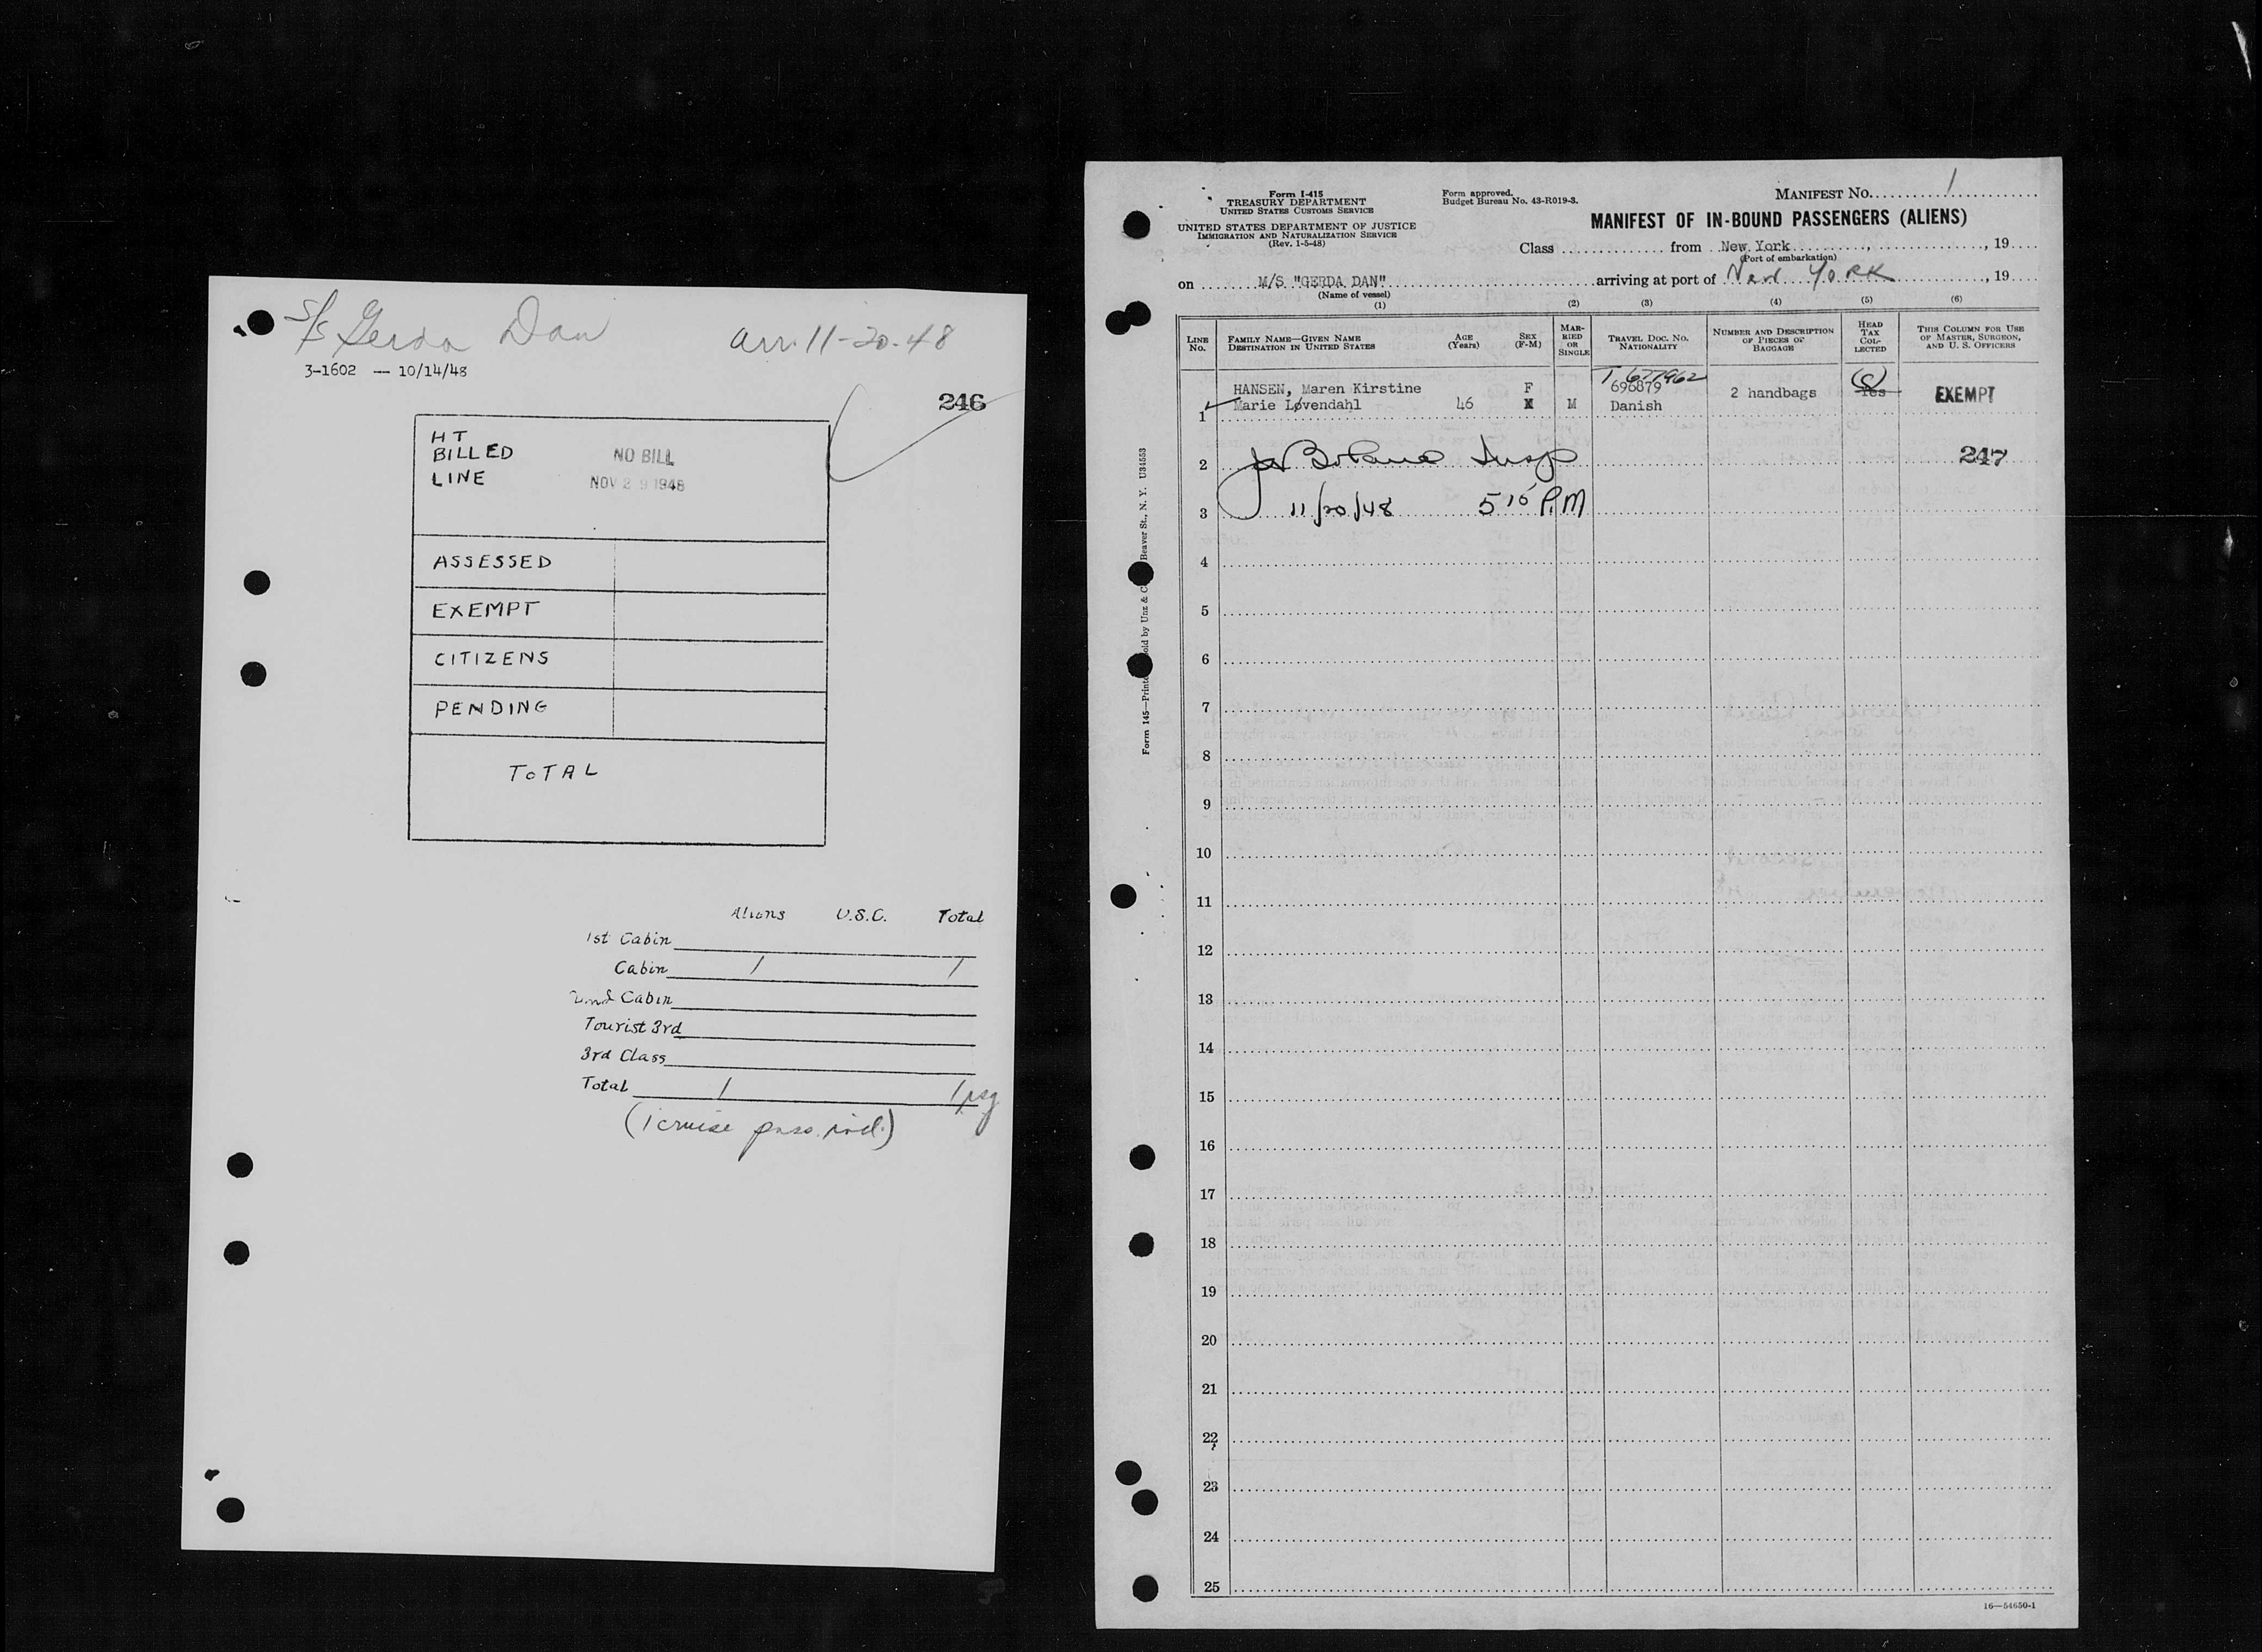 S/S Gerda Dan arr. 11-20-48
3-1602 — 10/14/48
246
HT
BILLED
LINE
NO BILL
NOV 29 1948
ASSESSED
EXEMPT
CITIZENS
PENDING
TOTAL
Aliens U.S.C. Total
1st Cabin
Cabin 1 1
2nd Cabin
Tourist 3rd
3rd Class
Total 1 1 psg
(1 cruise pass. incl.)
Form I-415
TREASURY DEPARTMENT
UNITED STATES CUSTOMS SERVICE
UNITED STATES DEPARTMENT OF JUSTICE
IMMIGRATION AND NATURALIZATION SERVICE
(Rev. 1-5-48)
Form approved.
Budget Bureau No. 43-R019-3.
MANIFEST NO. 1
MANIFEST OF IN-BOUND PASSENGERS (ALIENS)
Class from New York, , 19
(Port of embarkation)
on M/S "GERDA DAN" arriving at port of New York , 19
(Name of vessel)
(1) (2) (3) (4) (5) (6)
LINE No.
FAMILY NAME—GIVEN NAME
DESTINATION IN UNITED STATES
AGE
(Years)
SEX
(F-M)
MARRIED OR SINGLE
TRAVEL DOC. NO.
NATIONALITY
NUMBER AND DESCRIPTION OF PIECES OF BAGGAGE
HEAD TAX COLLECTED
THIS COLUMN FOR USE OF MASTER, SURGEON, AND U. S. OFFICERS
T 677962
HANSEN, Maren Kirstine F 696879 2 handbags Yes EXEMPT
1 Marie Løvendahl 46 M Danish
2 Insp 247
3 11/20/48 5 15 P.M
4
5
6
7
8
9
10
11
12
13
14
15
16
17
18
19
20
21
22
23
24
25
Form 145—Printed Sold by Unz & Co Beaver St., N. Y. U34553
16—54650-1